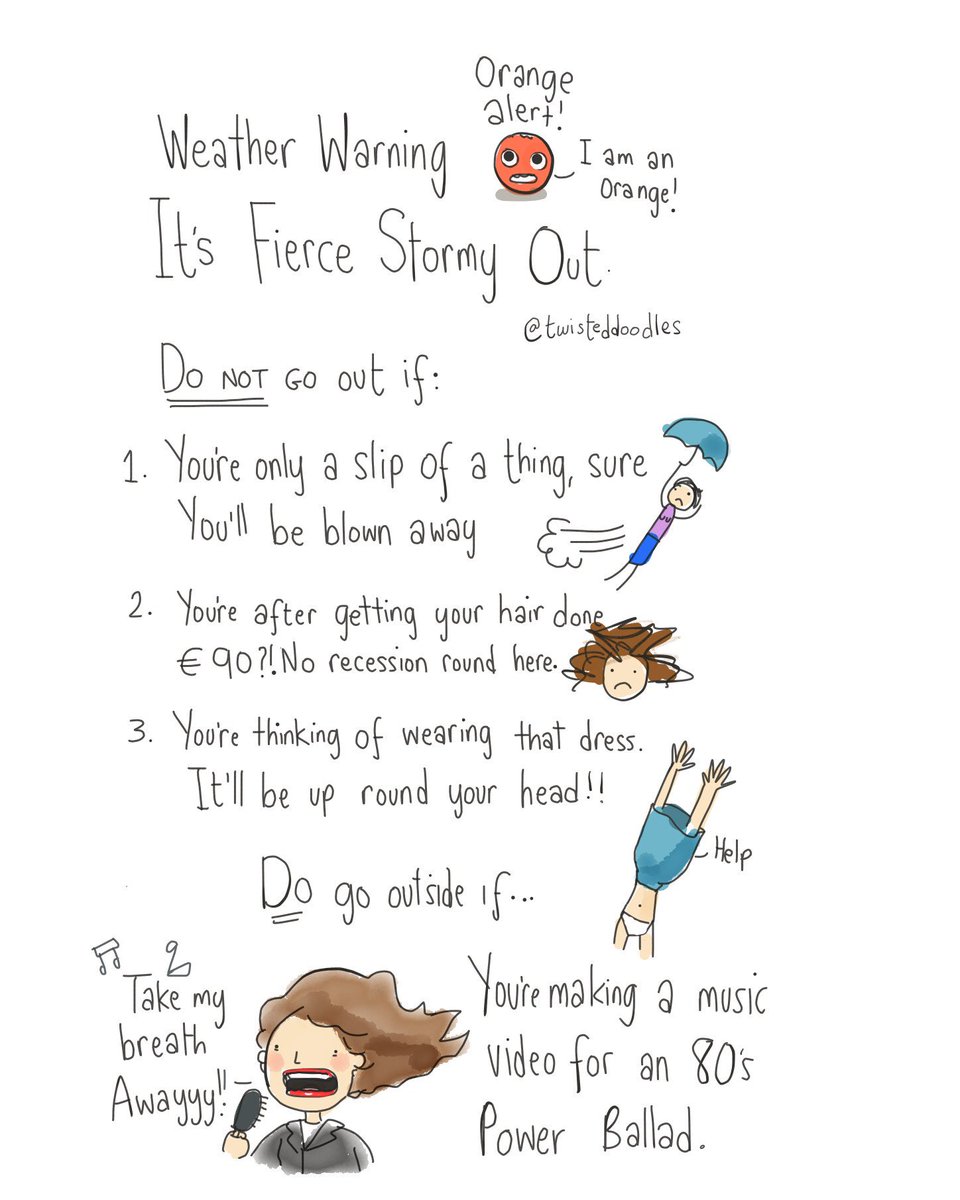 Orange
alert!
Weather Warning
I am an
Orange!
It's Fierce Stormy Out.
@twisteddoodles
Do NOT GO out if:
1. You're only a slip of a thing, sure
You'll be blown away
2. You're after getting your hair done
€90?! No recession round here.
3. You're thinking of wearing that dress.
It'll be up round your head!!
Help
Do go outside if...
Take my
breath
Awayyy!!
You're making a music
video for an 80's
Power Ballad.